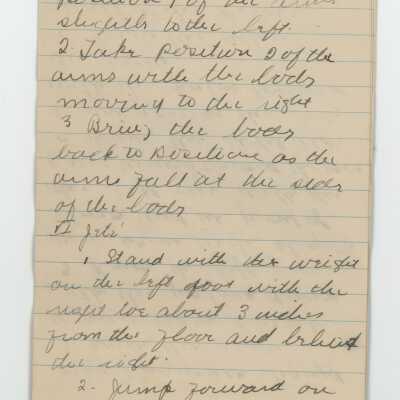 position 1 of the arms
slightly to the left.
2. Take position 2 of the
arms with the body
moving to the right
3 Bring the body
back to position as the
arms fall at the sides
of the body
VI Jeté
1. Stand with the weight
on the left foot with the
right toe about 3 inches
from the floor and behind
the right.
2. Jump forward on